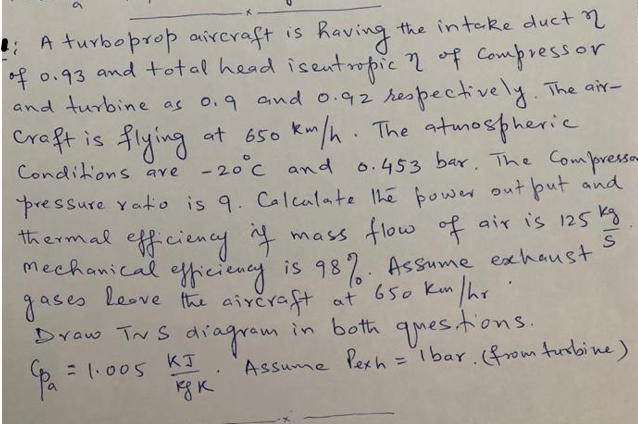 1: A turboprop aircraft is having the intake duct η
of 0.93 and total head isentropic η of compressor
and turbine as 0.9 and 0.92 respectively. The air-
craft is flying at 650 km/h. The atmospheric
Conditions are -20°C and 0.453 bar. The Compresso
pressure ratio is 9. Calculate the power output and
thermal efficiency if mass flow of air is 125 kg/s.
mechanical efficiency is 98%. Assume exhaust
gases leave the aircraft at 650 km/hr.
Draw T~S diagram in both questions.
Cpa = 1.005 KJ/kgK. Assume Pexh = 1bar. (from turbine)